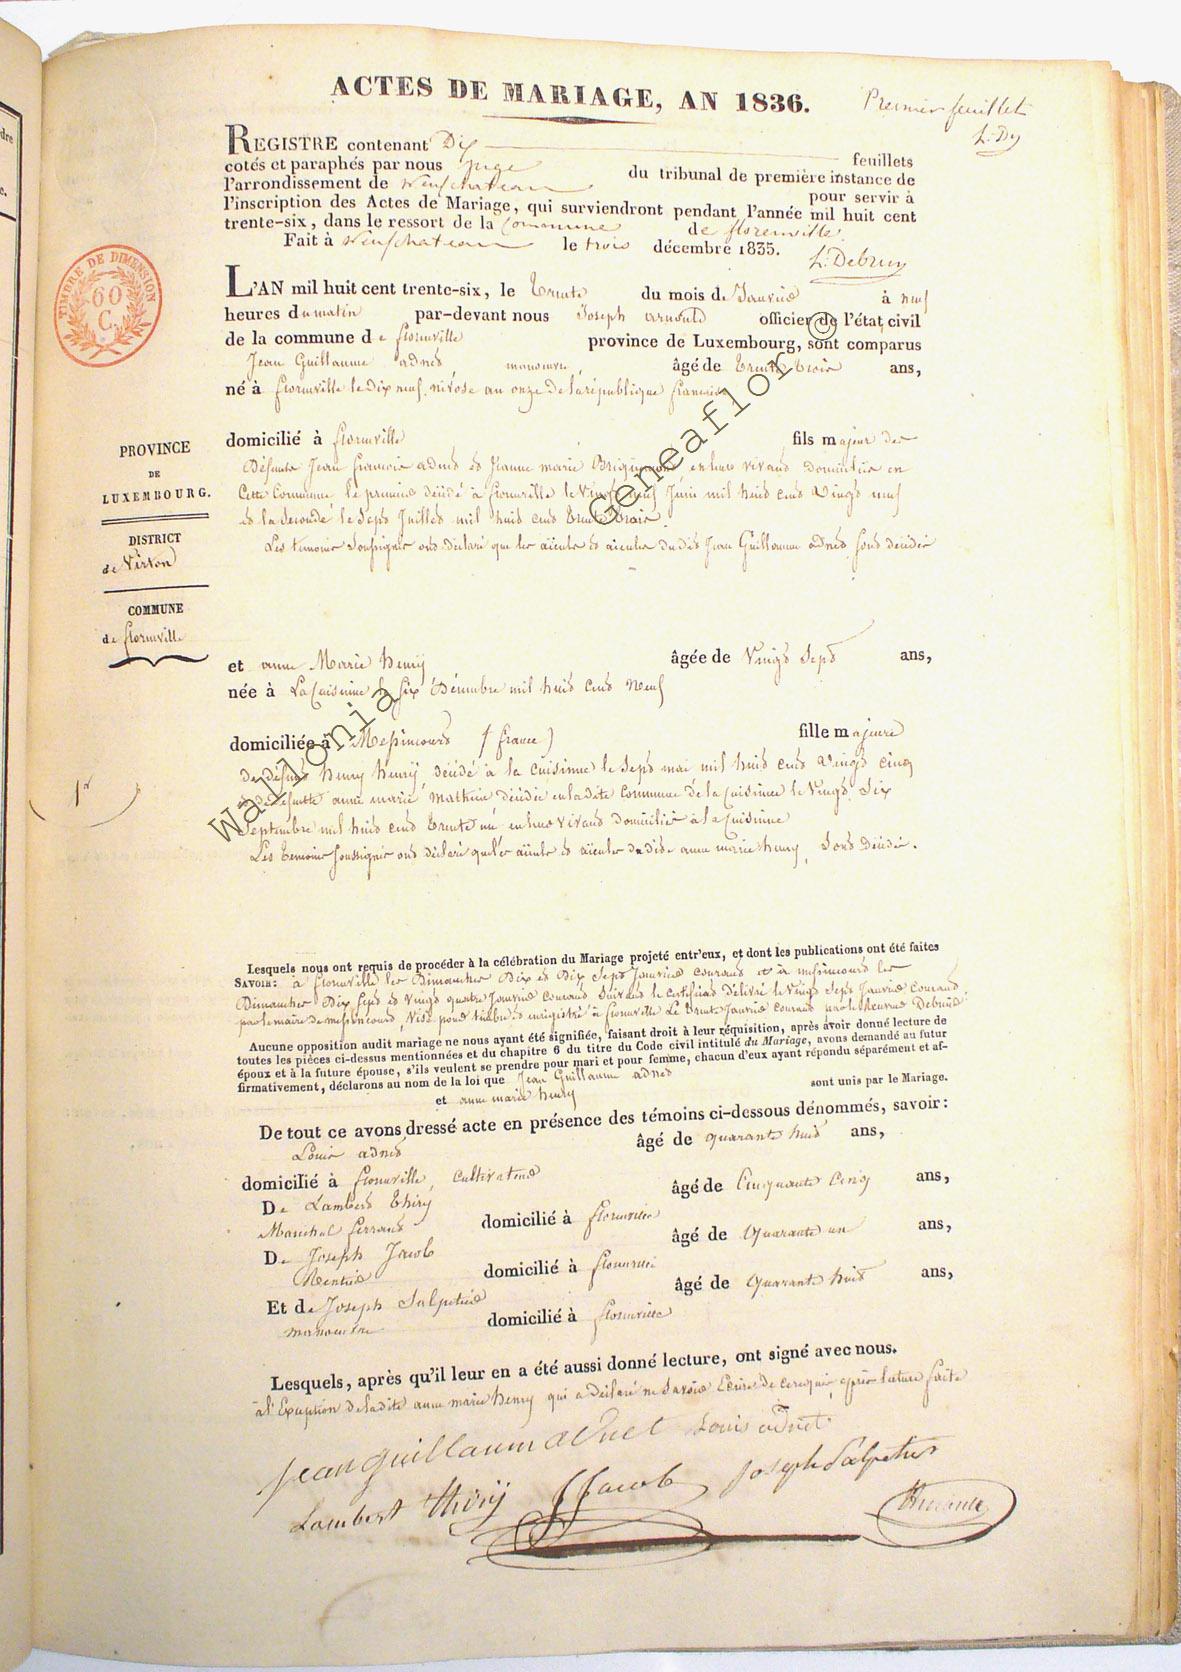 ACTES DE MARIAGE, AN 1836.
Premier feuillet
REGISTRE contenant Dix feuillets
cotés et paraphés par nous juge du tribunal de première instance de
l'arrondissement de neufchateau pour servir à
l'inscription des Actes de Mariage, qui surviendront pendant l'année mil huit cent
trente-six, dans le ressort de la commune de florenville.
Fait à neufchateau le trois décembre 1835.
TIMBRE DE DIMENSION
60
C.
L'AN mil huit cent trente-six, le trente du mois de Janvier à neuf
heures du matin par-devant nous Joseph arnould officier de l'état civil
de la commune de florenville province de Luxembourg, sont comparus
Jean Guillaume adnet, manoeuvre, âgé de trente trois ans,
né à florenville le dix neuf nivose an onze de la république francaise
domicilié à florenville fils majeur des
Défunts Jean francois adnet et Jeanne marie en leur vivant domiciliés en
Cette Commune, le premier décédé à florenville le Vingt neuf Juin mil huit cent Vingt neuf
et la Seconde le Sept Juillet mil huit cent trente trois.
Les temoins Soussignés ont déclaré que les aïeuls et aïeules du dit Jean Guillaume adnet sont décédés
PROVINCE
DE
LUXEMBOURG.
DISTRICT
de Virton
COMMUNE
de florenville
et anne Marie henry âgée de Vingt Sept ans,
née à La Cuisinne le Six Décembre mil huit cent Neuf
domiciliée à Messincourt (france) fille majeure
de défunt henry henry décédé à la Cuisinne le Sept mai mil huit cent Vingt cinq
et de défunte anne marie mathieu décédée en la dite Commune de la Cuisinne le Vingt Six
Septembre mil huit cent trente un en leur vivant domiciliés à la Cuisinne
Les temoins Soussignés ont déclaré que les aïeuls et aïeules de la dite anne marie henry, sont décédés.
1er
Lesquels nous ont requis de procéder à la célébration du Mariage projeté entr'eux, et dont les publications ont été faites
SAVOIR: à florenville les Dimanches Dix et Dix Sept Janvier courant et à messincourt les
Dimanches Dix Sept et vingt quatre Janvier courant Suivant le certificat délivré le Vingt Sept Janvier Courant
par le maire de messincourt, visé pour timbre et enregistré à florenville Le trente Janvier courant par le Receveur
Aucune opposition audit mariage ne nous ayant été signifiée, faisant droit à leur réquisition, après avoir donné lecture de
toutes les pièces ci-dessus mentionnées et du chapitre 6 du titre du Code civil intitulé du Mariage, avons demandé au futur
époux et à la future épouse, s'ils veulent se prendre pour mari et pour femme, chacun d'eux ayant répondu séparément et af-
firmativement, déclarons au nom de la loi que Jean Guillaume adnet
et anne marie henry sont unis par le Mariage.
De tout ce avons dressé acte en présence des témoins ci-dessous dénommés, savoir:
Louis adnet âgé de quarante huit ans,
domicilié à florenville, cultivateur
De Lambert thiry âgé de Cinquante Cinq ans,
Marechal ferrant domicilié à florenville
De Joseph Jacob âgé de Quarante un ans,
Rentier domicilié à florenville
Et de Joseph Salpetier âgé de Quarante huit ans,
manoeuvre domicilié à florenville
Lesquels, après qu'il leur en a été aussi donné lecture, ont signé avec nous.
à l'Exception de la dite anne marie henry qui a déclaré ne Savoir Ecrire de ce requis, après lecture faite
jean guillaum adnet Louis adnet
Lambert thiry JJacob joseph Salpetier
Wallonia Geneaflor ©